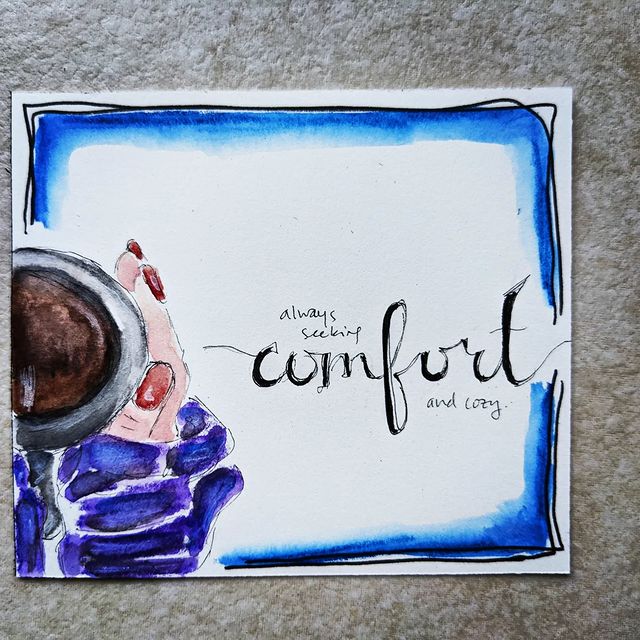 always
seeking
comfort
and cozy.